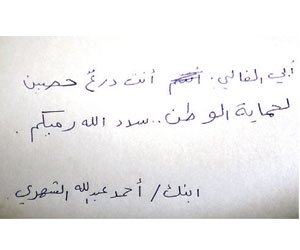 أبي الغالي. أنت درعٌ حصين
لحماية الوطن.. سدد الله رميكم.
ابنك/ أحمد عبدالله الشهري